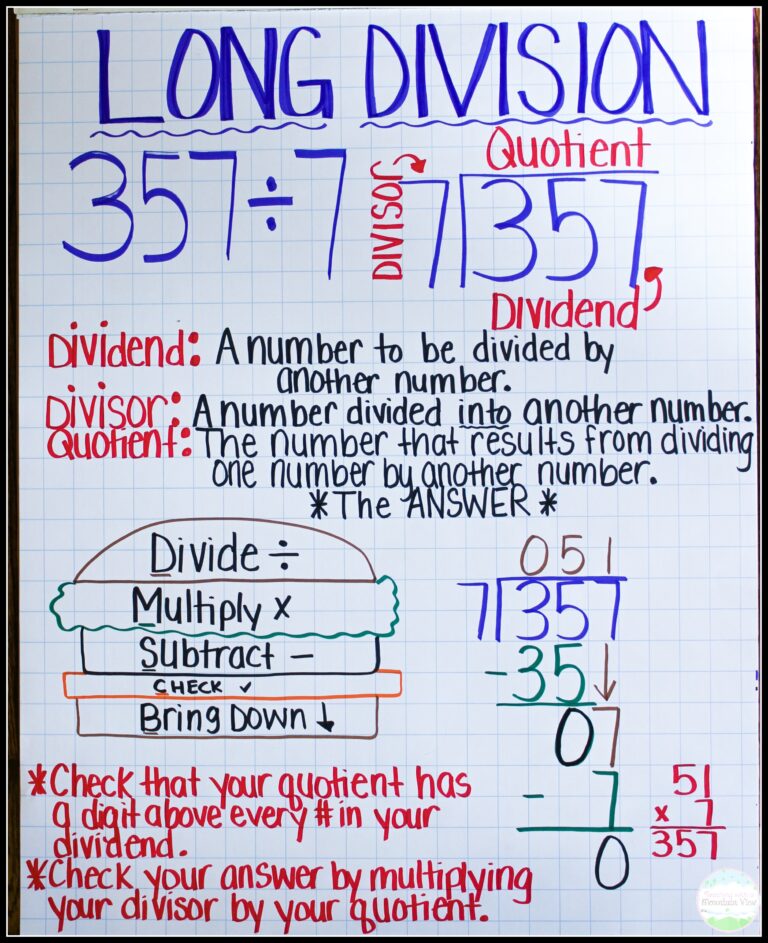 LONG DIVISION
357÷7
DIVISOR
Quotient
7)357
Dividend
Dividend: A number to be divided by
another number.
Divisor: A number divided into another number.
Quotient: The number that results from dividing
one number by another number.
*The ANSWER*
Divide ÷
Multiply x
Subtract –
CHECK ✓
Bring Down ↓
051
7)357
-35↓
07
- 7
0
51
x 7
357
*Check that your quotient has
a digit above every # in your
dividend.
*Check your answer by multiplying
your divisor by your quotient.
Mountain View